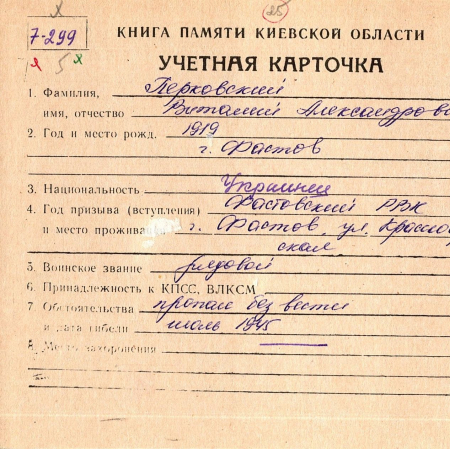 25
7-299
КНИГА ПАМЯТИ КИЕВСКОЙ ОБЛАСТИ
х 5 х
УЧЕТНАЯ КАРТОЧКА
1. Фамилия, Перковский
имя, отчество Виталий Александрови
2. Год и место рожд. 1919
г. Фастов
3. Национальность Украинец
4. Год призыва (вступления) Фастовский РВК
и место прожива г. Фастов, ул.
ская
5. Воинское звание рядовой
6. Принадлежность к КПСС, ВЛКСМ
7. Обстоятельства пропал без вести
и дата гибели июль 1945
8. Место захоронения